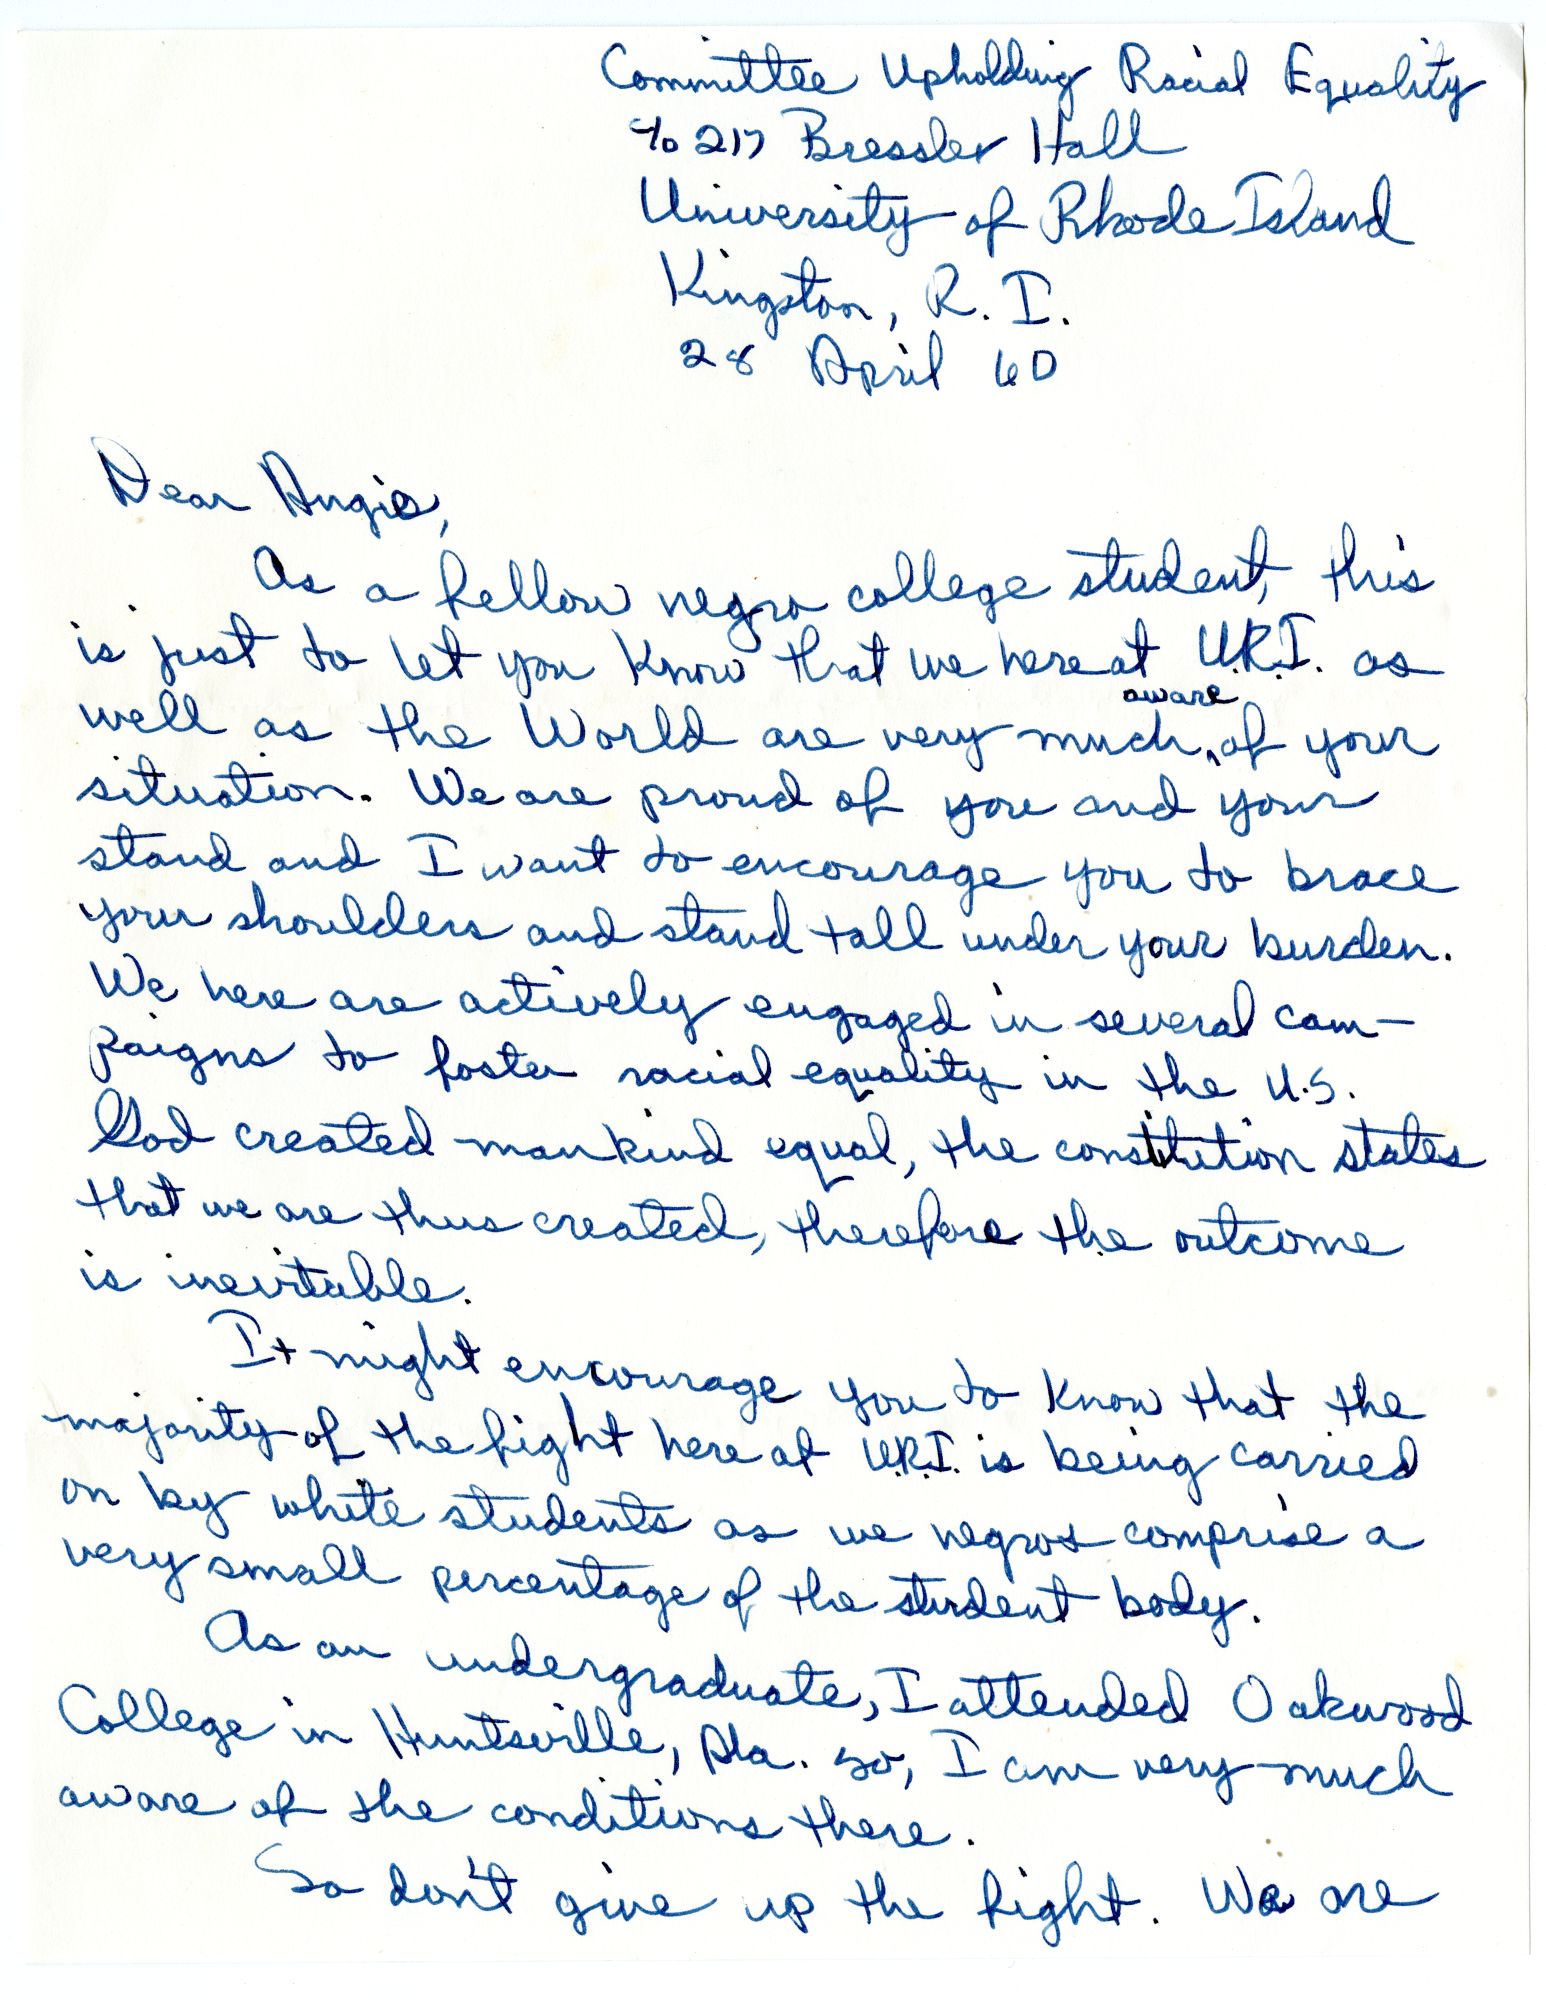 Committee Upholding Racial Equality
℅ 217 Bressler Hall
University of Rhode Island
Kingston, R. I.
28 April 60
Dear Angie,
As a fellow negro college student, this
is just to let you know that we here at U.R.I. as
well as the World are very much aware of your
situation. We are proud of you and your
stand and I want to encourage you to brace
your shoulders and stand tall under your burden.
We here are actively engaged in several cam-
paigns to foster racial equality in the U.S.
God created mankind equal, the constitution states
that we are thus created, therefore the outcome
is inevitable.
It might encourage you to know that the
majority of the fight here at U.R.I. is being carried
on by white students as we negros comprise a
very small percentage of the student body.
As an undergraduate, I attended Oakwood
College in Huntsville, Ala. so, I am very much
aware of the conditions there.
So don't give up the fight. We are